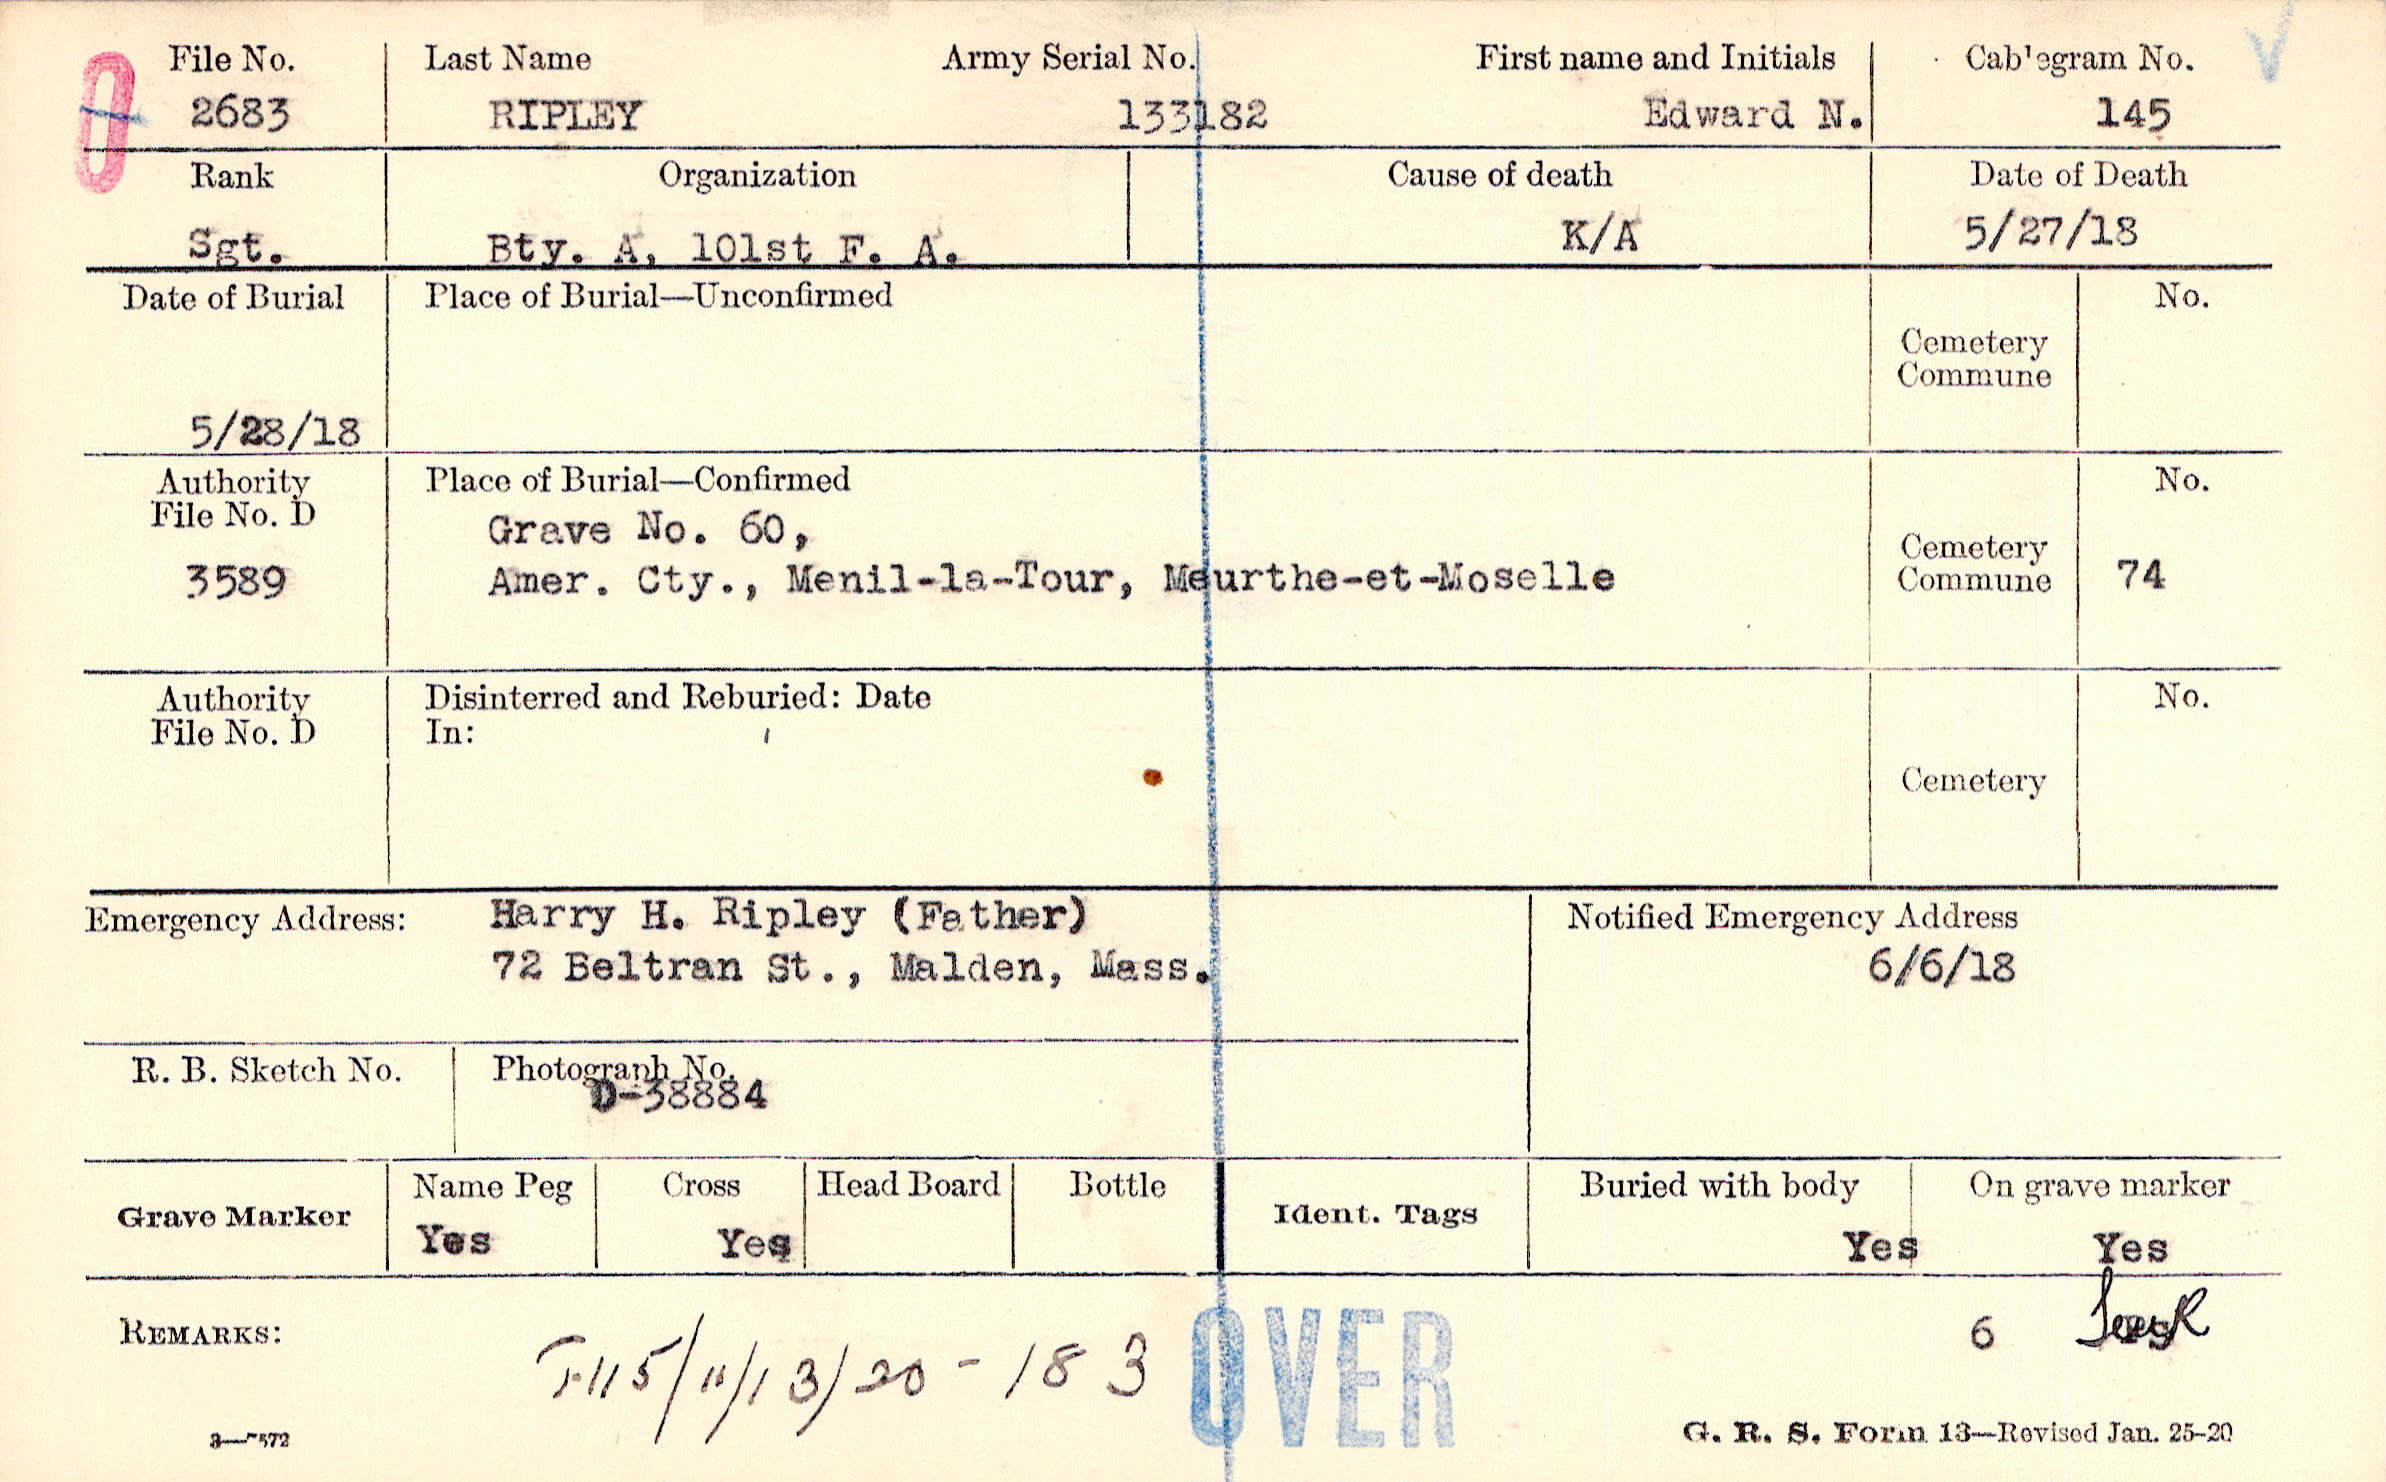 File No. Last Name Army Serial No. First name and Initials Cablegram No.
2683 RIPLEY 133182 Edward N. 145
Rank Organization Cause of death Date of Death
Sgt. Bty. A, 101st F. A. K/A 5/27/18
Date of Burial Place of Burial—Unconfirmed No.
Cemetery
Commune
5/28/18
Authority Place of Burial—Confirmed No.
File No. D
Grave No. 60,
Cemetery
3589 Amer. Cty., Menil-la-Tour, Meurthe-et-Moselle Commune 74
Authority Disinterred and Reburied: Date No.
File No. D In:
Cemetery
Emergency Address: Harry H. Ripley (Father) Notified Emergency Address
72 Beltran St., Malden, Mass. 6/6/18
R. B. Sketch No. Photograph No.
D-38884
Name Peg Cross Head Board Bottle Buried with body On grave marker
Grave Marker Ident. Tags
Yes Yes Yes Yes
REMARKS: 6
T.115/11/13/20-183 OVER
G. R. S. Form 13—Revised Jan. 25-20